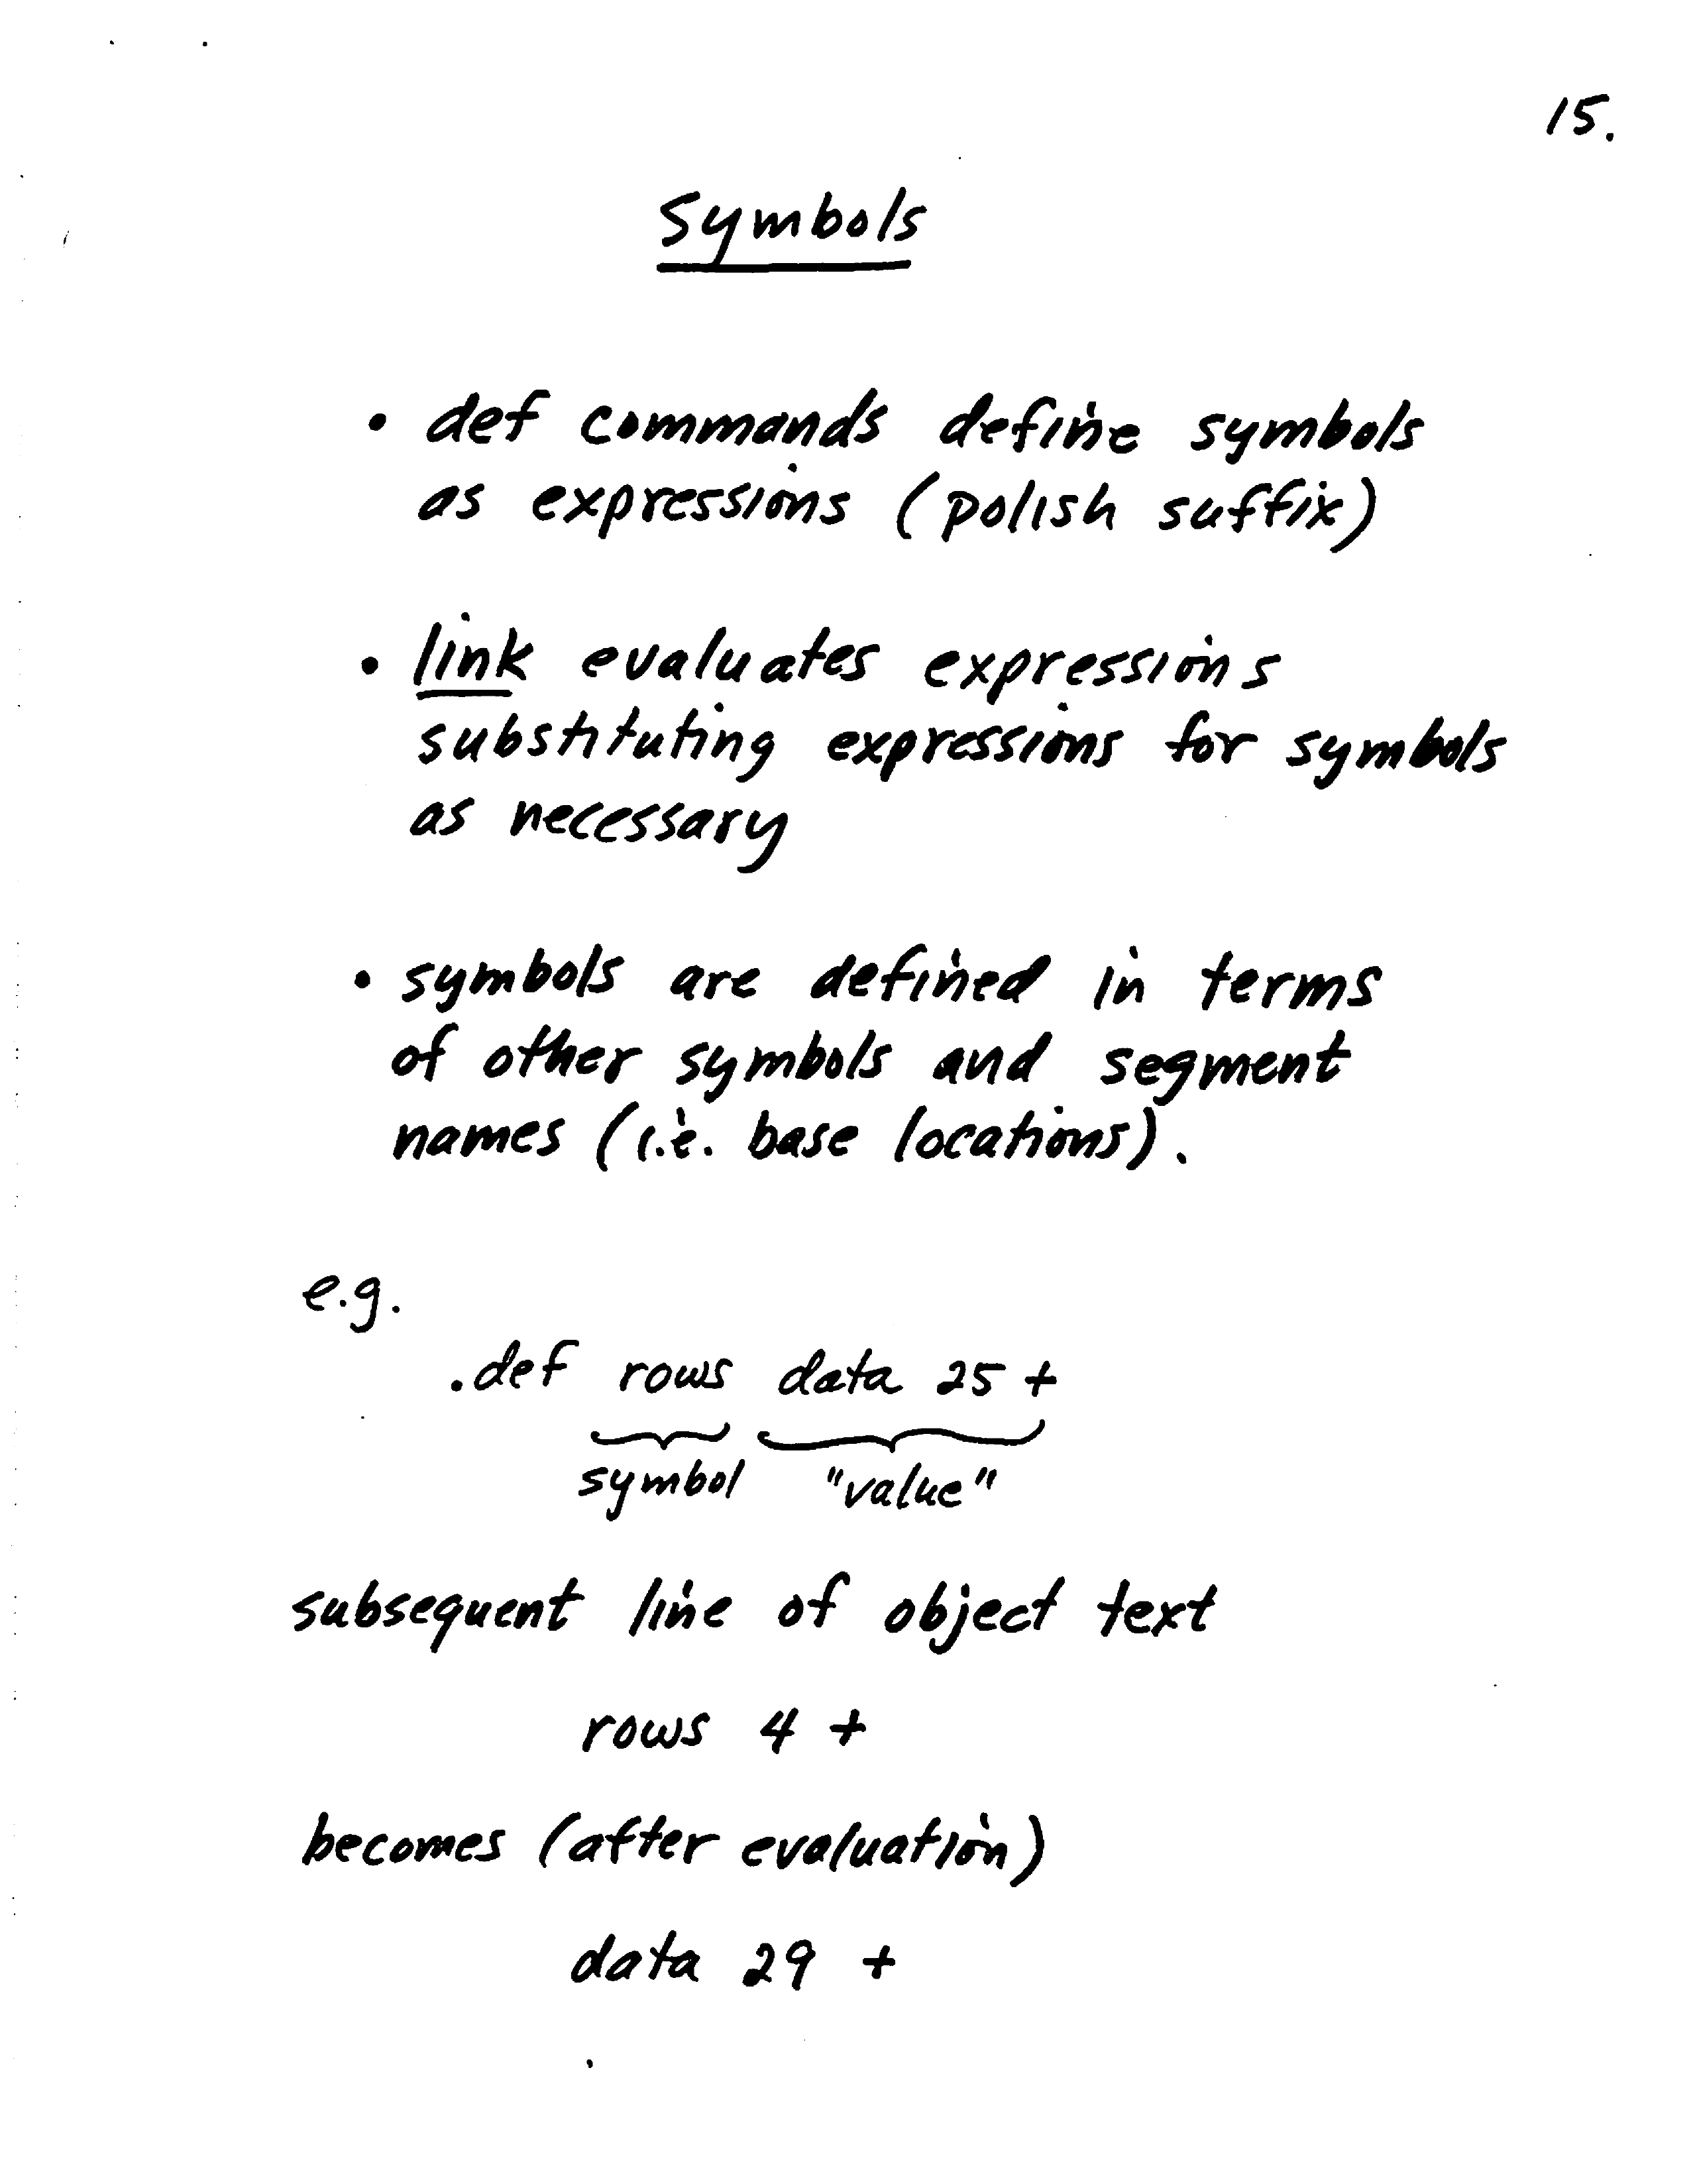 15.
Symbols
• def commands define symbols
as expressions (polish suffix)
• link evaluates expressions
substituting expressions for symbols
as necessary
• symbols are defined in terms
of other symbols and segment
names (i.e. base locations).
e.g.
.def rows data 25 +
symbol "value"
subsequent line of object text
rows 4 +
becomes (after evaluation)
data 29 +